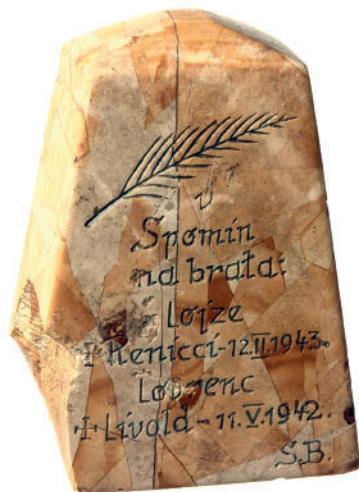 V
Spomin
na brata:
Lojze
+ Renicci-12.II.1943.
Lovrenc
+ Livold - 11.V.1942.
S.B.